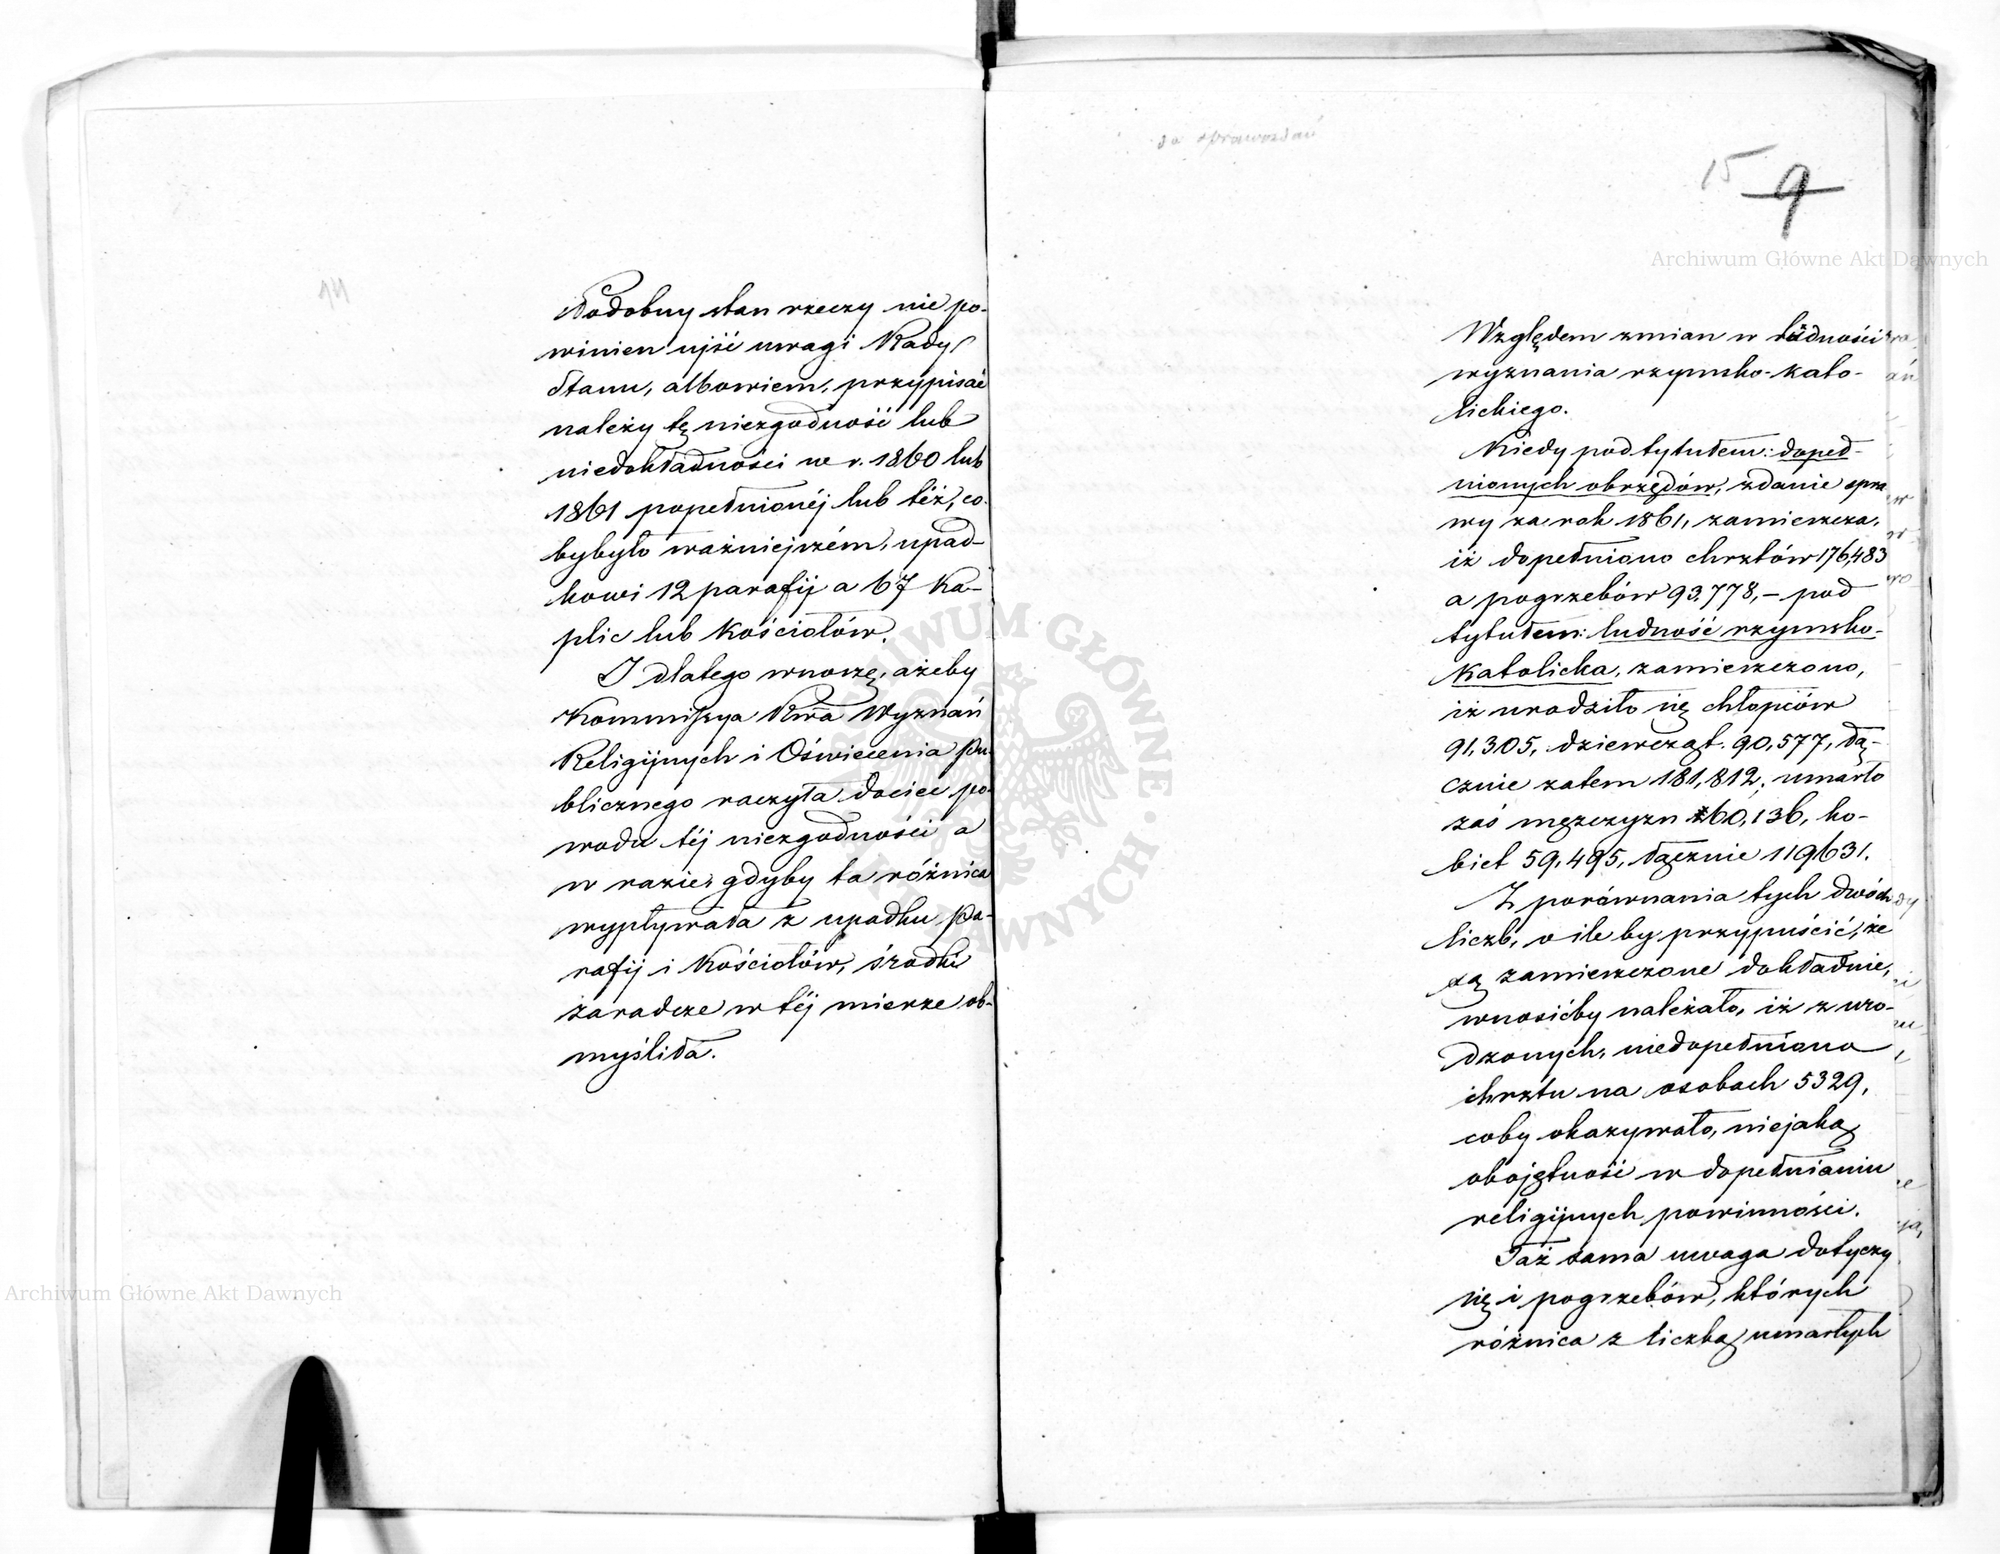 Podobny stan rzeczy nie po-
winien ujść uwagi Rady
Stanu, albowiem, przypisać
należy tę niezgodność lub
niedokładności w r. 1860 lub
1861 popełnionéj lub téż, co
bybyło ważniejszém, upad-
kowi 12 parafij a 67 Ka-
plic lub Kościołów.
I dlatego wnoszę, ażeby
Kommissya Rwa Wyznań
Religijnych i Oświecenia Pu-
blicznego raczyła dociec po-
wodu téj niezgodności a
w razie, gdyby ta różnica
wypływała z upadku Pa-
rafij i Kościołów, środki
zaradcze w téj mierze ob-
myśliła.
14
do sprawozdań
15 9
Względem zmian w ludności
wyznania rzymsko-kato-
lickiego.
Kiedy pod tytułem: dopeł-
nionych obrzędów, zdanie spra
wy za rok 1861, zamieszcza,
iż dopełniono chrztów 176,483
a pogrzebów 93,778, – pod
tytułem: ludność rzymsko-
katolicka, zamieszczono,
iż urodziło się chłopców
91,305, dziewcząt 90,577, łą-
cznie zatem 181,812; umarło
zaś mężczyzn 60,136, ko-
biet 59,495, łącznie 119631.
Z porównania tych dwóch
liczb, o ile by przypuścić, że
są zamieszczone dokładnie,
wnosićby należało, iż z uro-
dzonych, niedopełniono
chrztu na osobach 5329,
coby okazywało, niejaką
obojętność w dopełnianiu
religijnych powinności.
Taż sama uwaga dotyczy
się i pogrzebów, których
różnica z liczbą umarłych
Archiwum Główne Akt Dawnych
Archiwum Główne Akt Dawnych
ARCHIWUM GŁÓWNE AKT DAWNYCH